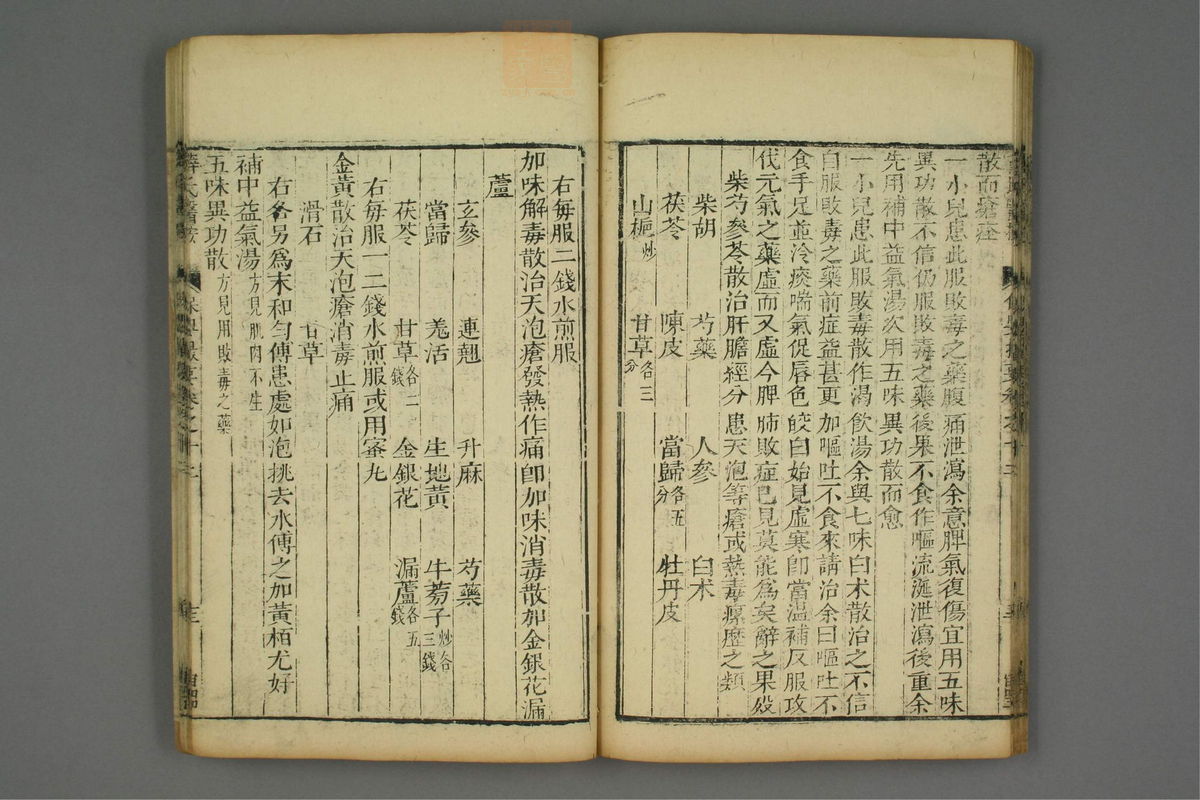 散而瘡痊
一小兒患此服敗毒之藥腹痛泄瀉余意脾氣復傷宜用五味
異功散不信仍服敗毒之藥後果不食作嘔流涎泄瀉後重余
先用補中益氣湯次用五味異功散而愈
一小兒患此服敗毒散作渴飲湯余與七味白术散治之不信
自服敗毒之藥前症益甚更加嘔吐不食來請治余曰嘔吐不
食手足並冷痰喘氣促唇色㿠白始見虛寒卽當溫補反服攻
伐元氣之藥虛而又虛今脾肺敗症已見莫能爲矣辭之果歿
柴芍參苓散治肝膽經分患天泡等瘡或熱毒瘰癧之類
柴胡 芍藥 人參 白术
茯苓 陳皮 當歸各五分 牡丹皮
山梔炒 甘草各三分
右每服二錢水煎服
加味解毒散治天泡瘡發熱作痛卽加味消毒散加金銀花漏
蘆
玄參 連翹 升麻 芍藥
當歸 羗活 生地黃 牛蒡子炒各三錢
茯苓 甘草各二錢 金銀花 漏蘆各五錢
右每服一二錢水前服或用蜜丸
金黃散治天泡瘡消毒止痛
滑石 甘草
右各另爲末和勻傅患處如泡挑去水傅之加黃栢尤好
補中益氣湯方見肌肉不生
五味異功散方見用敗毒之藥
薛氏醫按 保嬰撮要卷之十二